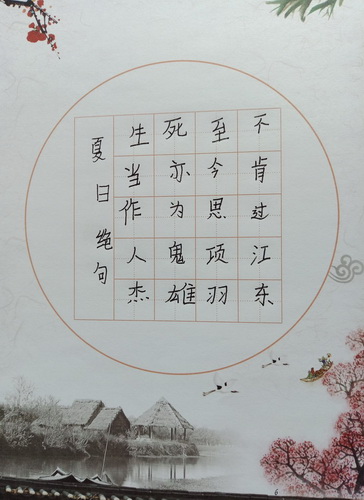 夏日绝句
生当作人杰
死亦为鬼雄
至今思项羽
不肯过江东
6